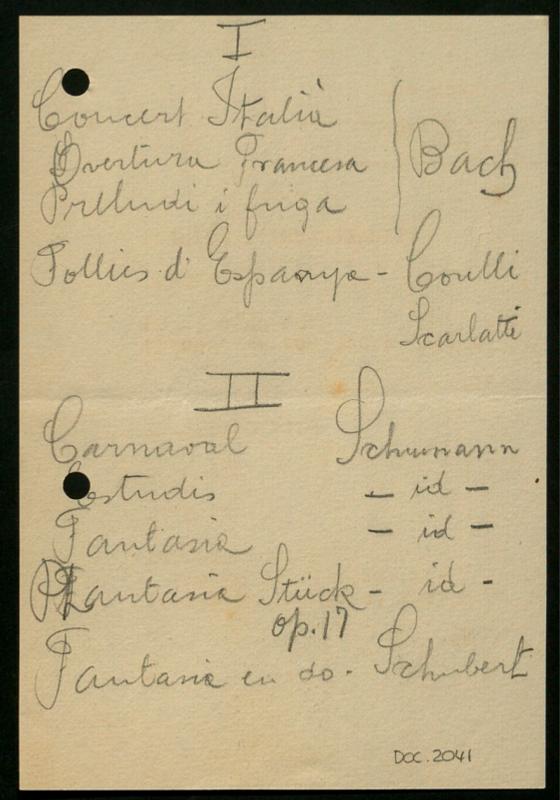 I
Concert Italià
Overtura Francesa
Preludi i fuga
Bach
Follies d'Espanya - Corelli
Scarlatti
II
Carnaval Schumann
Estudis - id -
Fantasia - id -
Phantasia Stück - id -
op. 17
Fantasia en do - Schubert
DOC. 2041